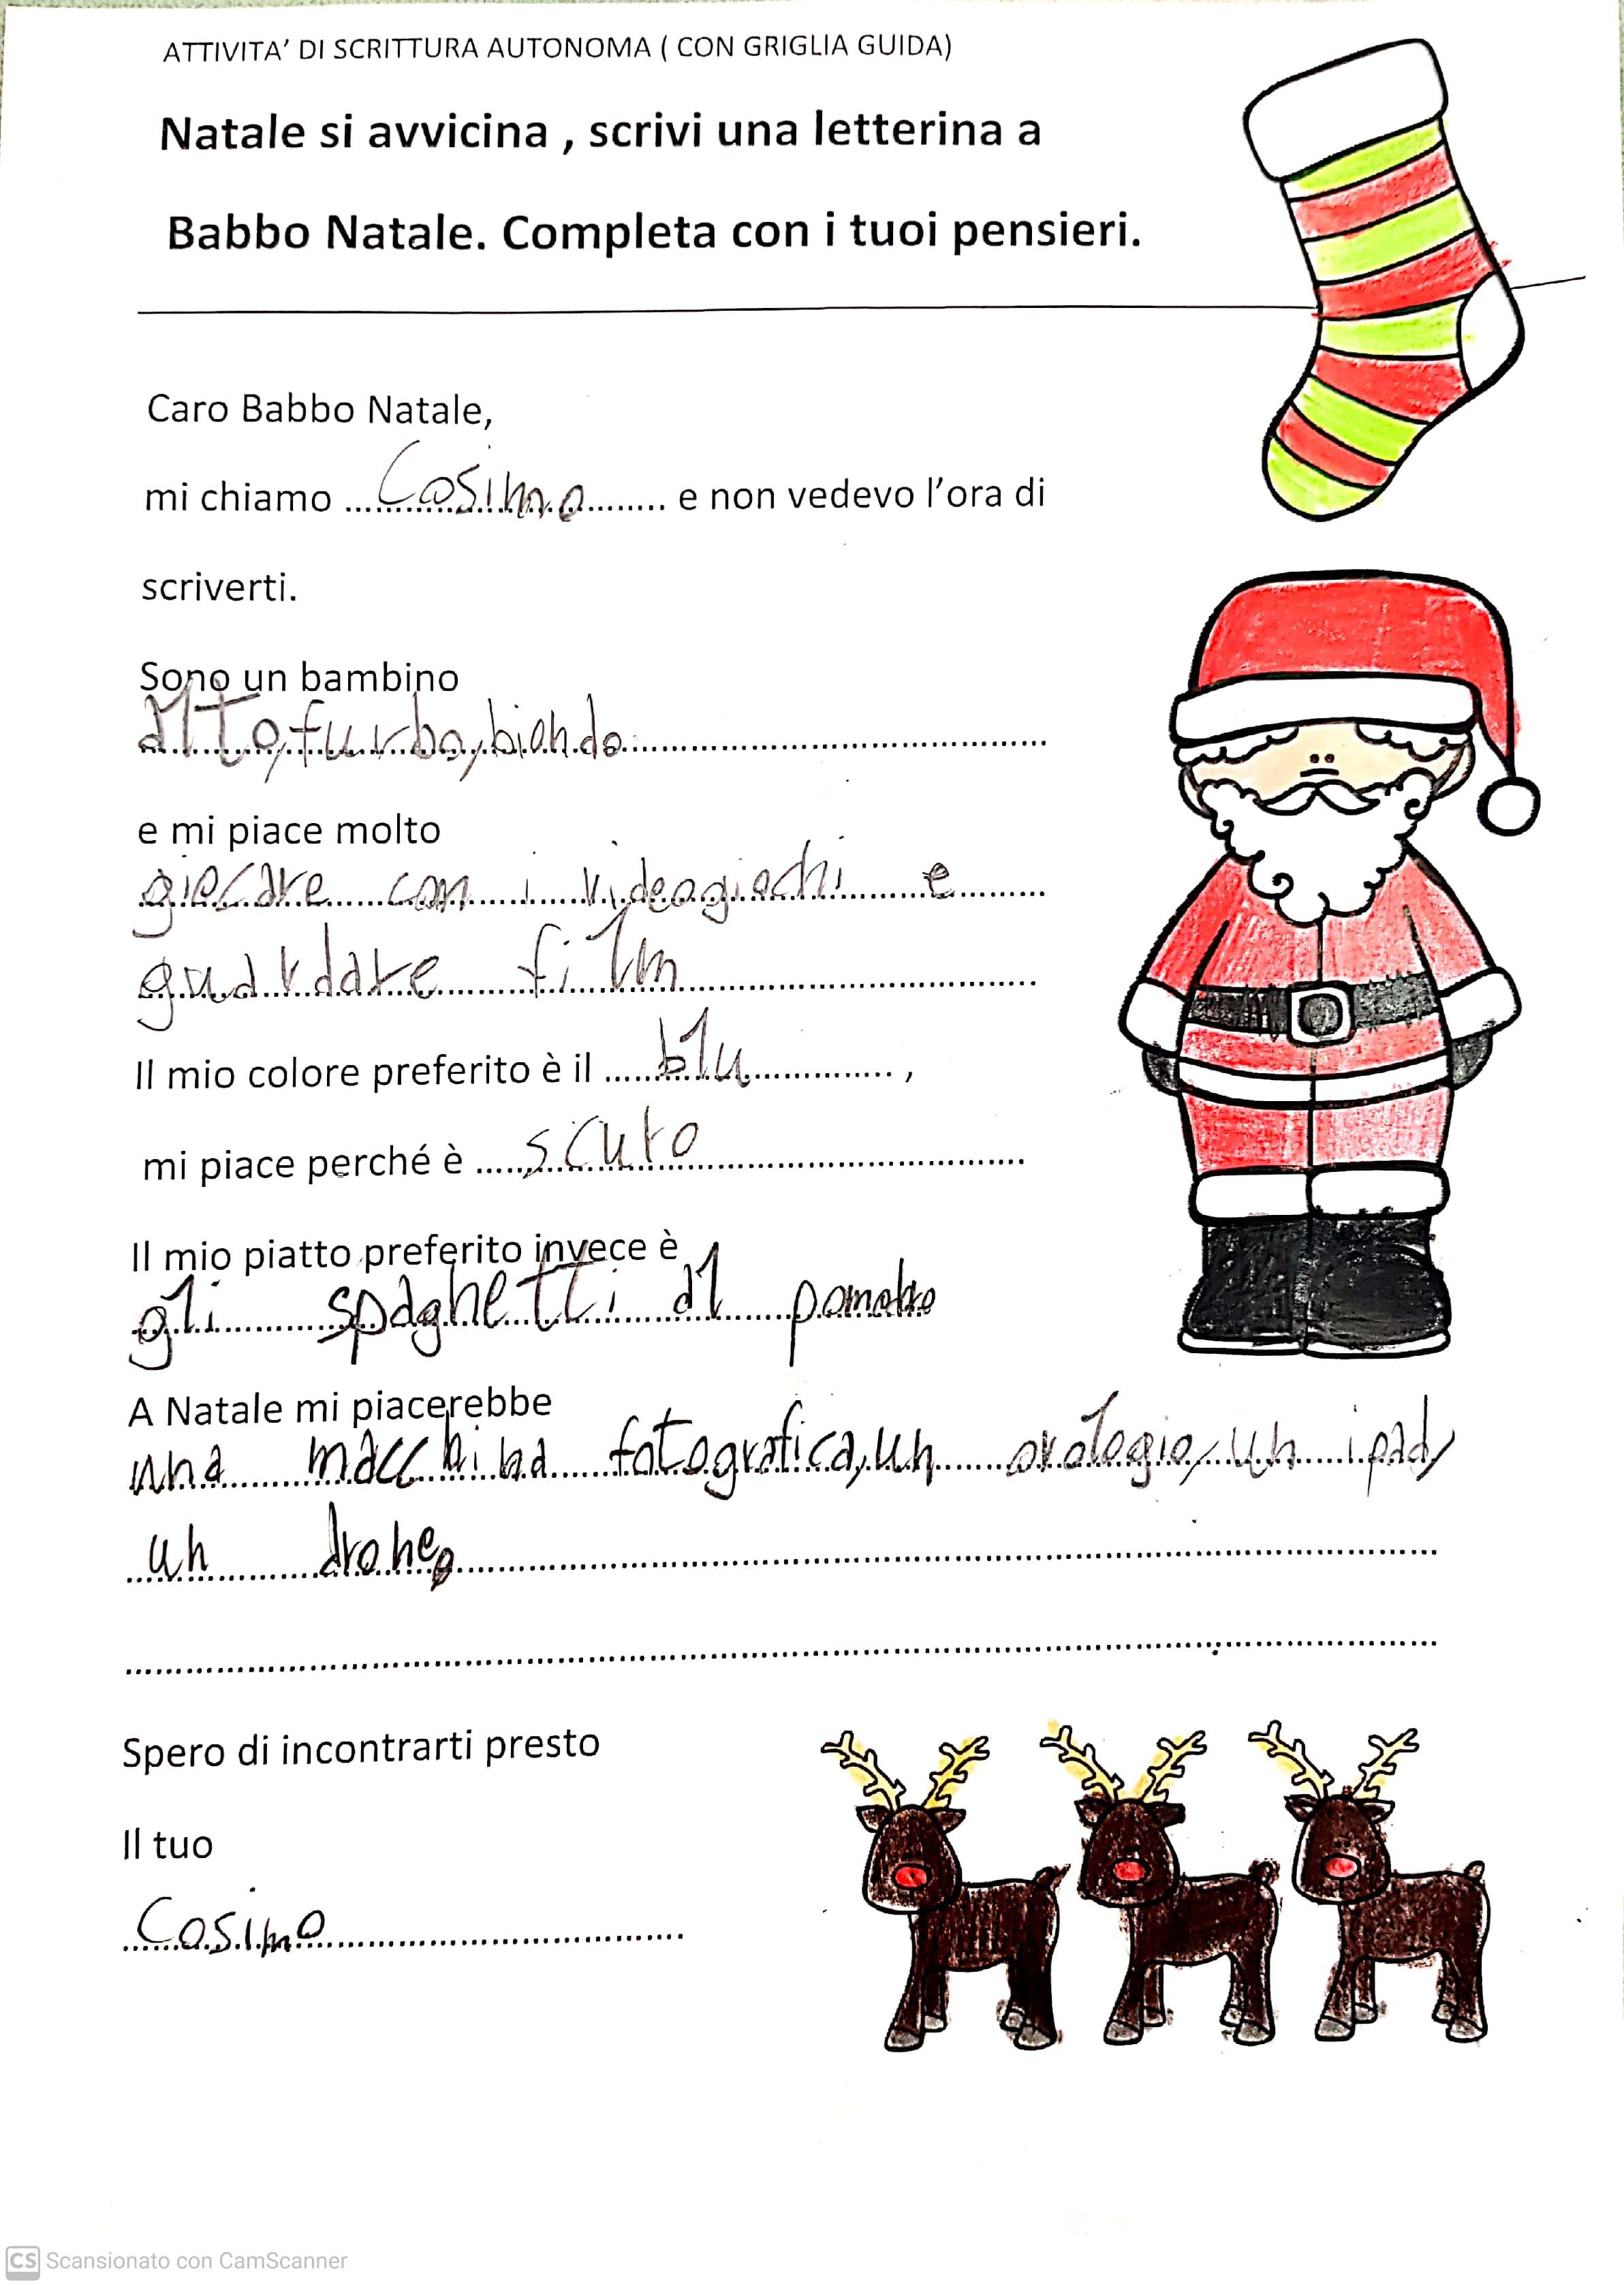 ATTIVITA' DI SCRITTURA AUTONOMA ( CON GRIGLIA GUIDA)
Natale si avvicina , scrivi una letterina a
Babbo Natale. Completa con i tuoi pensieri.
Caro Babbo Natale,
mi chiamo ...Cosimo........ e non vedevo l'ora di
scriverti.
Sono un bambino
alto, furbo, biondo
e mi piace molto
giocare con i videogiochi e
guardare film
Il mio colore preferito è il blu ,
mi piace perché è scuro
Il mio piatto preferito invece è
gli spaghetti al
A Natale mi piacerebbe
una macchina fotografica, un orologio, un ipad,
un drone
Spero di incontrarti presto
Il tuo
Cosimo
CS Scansionato con CamScanner